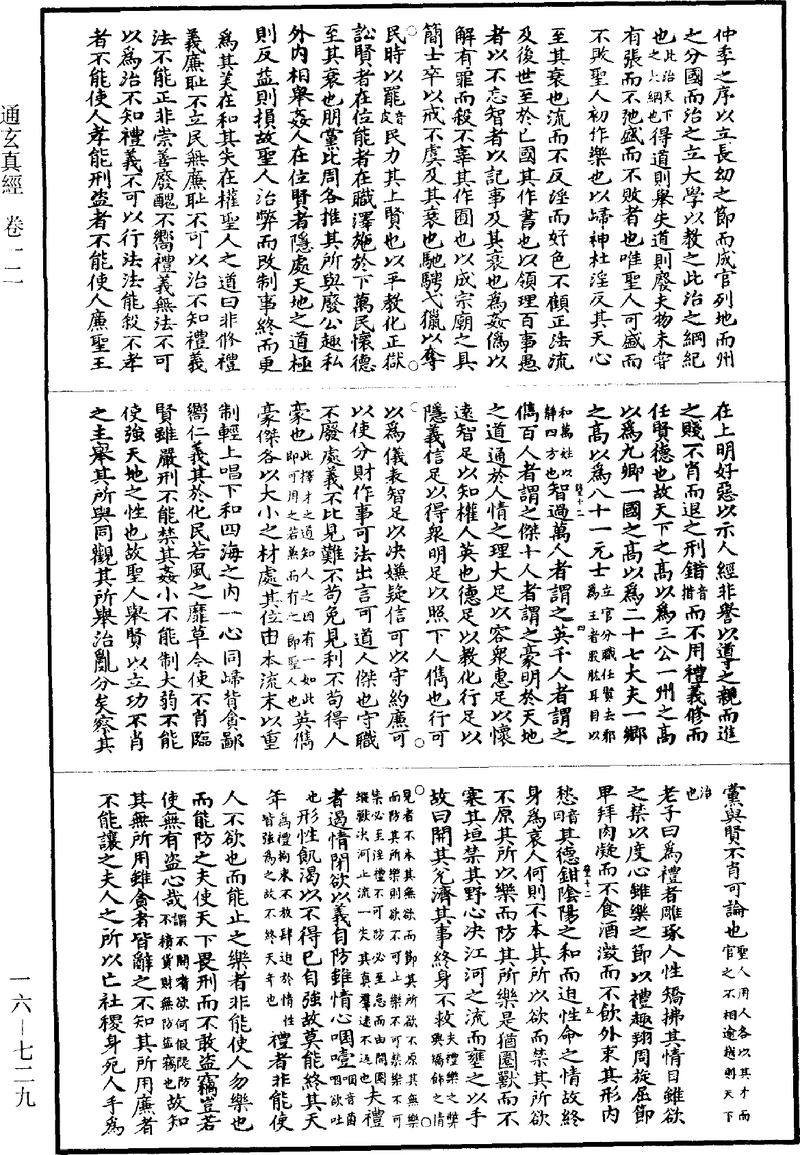 仲季之序以立長幼之節而成官列地而州
之分國而治之立大學以教之此治之綱紀
也此治天下之上綱也得道則舉失道則廢夫物未甞
有張而不弛盛而不敗者也唯聖人可盛而
不敗聖人初作樂也以歸神杜淫反其天心
至其衰也流而不反淫而好色不顧正法流
及後世至於亡國其作書也以領理百事愚
者以不忘智者以記事及其衰也為姦偽以
解有罪而殺不辜其作囿也以成宗廟之具
簡士卒以戒不虞及其衰也馳騁弋獵以奪
民時以罷音皮民力其上賢也以平教化正獄
訟賢者在位能者在職澤施於下萬民懷德
至其衰也朋黨比周各推其所與廢公趣私
外內相舉姦人在位賢者隱處天地之道極
則反益則損故聖人治弊而改制事終而更
為其美在和其失在權聖人之道曰非修禮
義廉恥不立民無廉恥不可以治不知禮義
法不能正非崇善廢醜不嚮禮義無法不可
以為治不知禮義不可以行法法能殺不孝
者不能使人孝能刑盜者不能使人廉聖王
在上明好惡以示人經非譽以導之親而進
之賤不肖而退之刑錯音措而不用禮義修而
任賢德也故天下之高以為三公一州之高
以為九卿一國之高以為二十七大夫一鄉
之高以為八十一元士立官分職任賢去邪為王者股肱耳目以
和萬姓以解四方也智過萬人者謂之英千人者謂之
儁百人者謂之傑十人者謂之豪明於天地
之道通於人情之理大足以容衆惠足以懷
遠智足以知權人英也德足以教化行足以
隱義信足以得衆明足以照下人儁也行可
以為儀表智足以決嫌疑信可以守約廉可
以使分財作事可法出言可道人傑也守職
不廢處義不比見難不苟免見利不苟得人
豪也此擇才之道知人之因有一如此即可用之若兼而有之即聖人也英儁
豪傑各以大小之材處其位由本流末以重
制輕上唱下和四海之內一心同歸背貪鄙
嚮仁義其於化民若風之靡草今使不肖臨
賢雖嚴刑不能禁其姦小不能制大弱不能
使強天地之性也故聖人舉賢以立功不肖
之主舉其所與同觀其所舉治亂分矣察其
黨與賢不肖可論也聖人用人各以其才而官之不相逾越則天下
治也
老子曰為禮者雕琢人性矯拂其情目雖欲
之禁以度心雖樂之節以禮趣翔周旋屈節
卑拜肉凝而不食酒澂而不飲外束其形內
愁音囚其德鉗陰陽之和而迫性命之情故終
身為哀人何則不本其所以欲而禁其所欲
不原其所以樂而防其所樂是猶圈獸而不
塞其垣禁其野心決江河之流而壅之以手
故曰開其兌濟其事終身不救夫禮樂之弊興矯飾之情
見者不本其無欲而節其所欲不原其無樂而防其所樂則欲不可止樂不可禁樂不可
禁必至淫禮不可防必至怠而由開圈縱獸決河止流一失其真羣迷不返也夫禮
者遏情閉欲以義自防雖情心咽噎咽音菌咽欲吐
也形性飢渴以不得已自強故莫能終其天
年為禮拘束不敢肆迫於情性皆強為之故不終天年也禮者非能使
人不欲也而能止之樂者非能使人勿樂也
而能防之夫使天下畏刑而不敢盜竊豈若
使無有盜心哉謂不開嗜欲何假隄防不積貨財無防盜竊也故知
其無所用雖貪者皆辭之不知其所用廉者
不能讓之夫人之所以亡社稷身死人手為
通玄真經 卷一二
一六—七二九